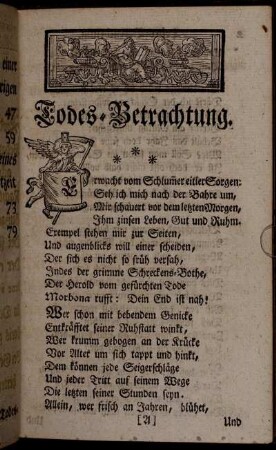 einer
rigen
47
59
eines
tzeit
73
79
Todes-
Todes-Betrachtung.
* * *
Erwacht vom Schlum̃er eitler Sorgen:
Seh ich mich nach der Bahre um,
Mir schauert vor dem letzten Morgen,
Ihm zinsen Leben, Gut und Ruhm.
Exempel stehen mir zur Seiten,
Und augenblicks will einer scheiden,
Der sich es nicht so früh versah,
Indes der grimme Schreckens-Bothe,
Der Herold vom gefürchten Tode
Morbona rufft: Dein End ist nah!
Wer schon mit bebendem Genicke
Entkräfftet seiner Ruhstatt winkt,
Wer krumm gebogen an der Krücke
Vor Alter um sich tappt und hinkt,
Dem können jede Seigerschläge
Und jeder Tritt auf seinem Wege
Die letzten seiner Stunden seyn.
Allein, wer frisch an Jahren, blühet,
[A]
Und